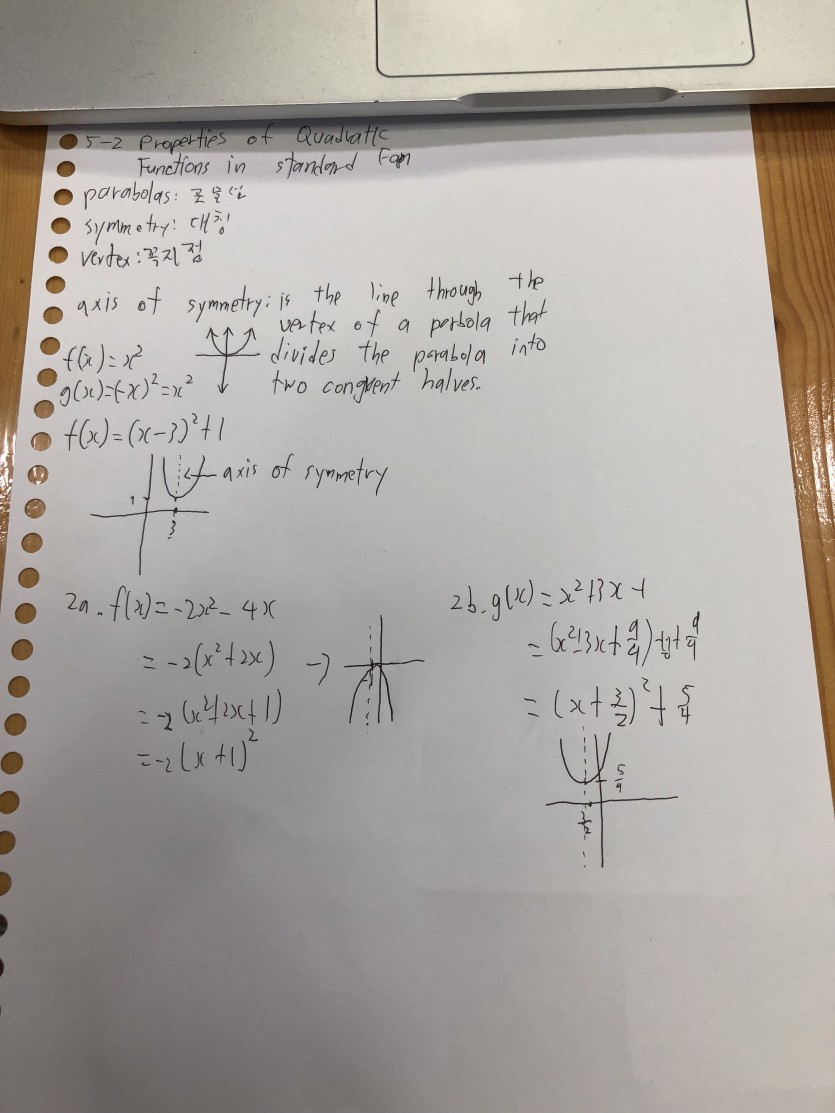 5-2 Properties of Quadratic
Functions in standard Fom
parabolas: 포물선
symmetry: 대칭
vertex: 꼭지점
axis of symmetry: is the line through the
vertex of a parbola that
divides the parabola into
two congruent halves.
f(x)=x²
g(x)=(-x)²=x²
f(x)=(x-3)²+1
axis of symmetry
1
3
2a. f(x)=-2x²-4x
=-2(x²+2x) →
=-2(x²+2x+1)
=-2(x+1)²
2b. g(x)=x²+3x-1
=(x²+3x+9/4)
=(x+3/2)²+5/4
5/4